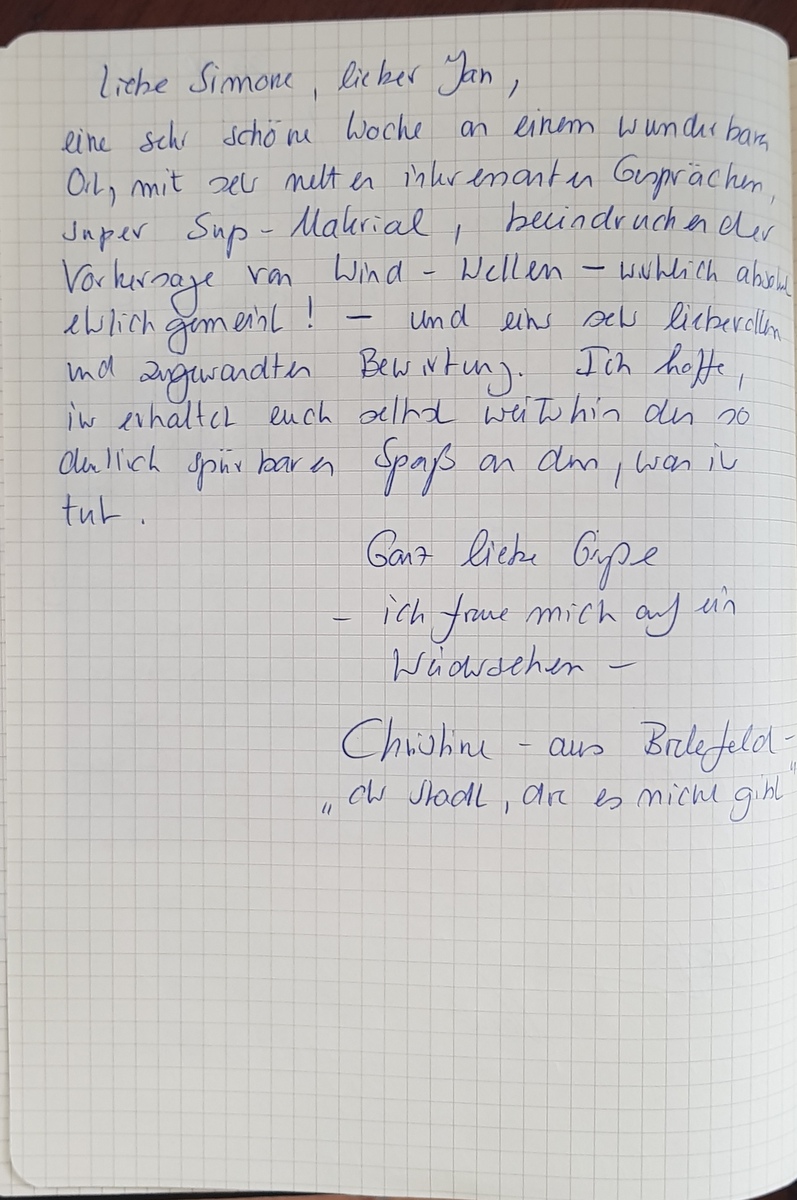 Liebe Simone, lieber Jan,
eine sehr schöne Woche an einem wunderbaren
Ort, mit sehr netten interessanten Gesprächen,
super Sup-Material, beeindruckender
Vorhersage von Wind - Wellen - wirklich absolut
ehrlich gemeint! - und eine sehr liebevollen
und zugewandten Bewirtung. Ich hoffe,
ihr erhaltet euch selbst weiterhin den so
deutlich spürbaren Spaß an dem, was ihr
tut.
Ganz liebe Grüße
- ich freue mich auf ein
Wiedersehen -
Christine - aus Bielefeld -
„der Stadt, die es nicht gibt"